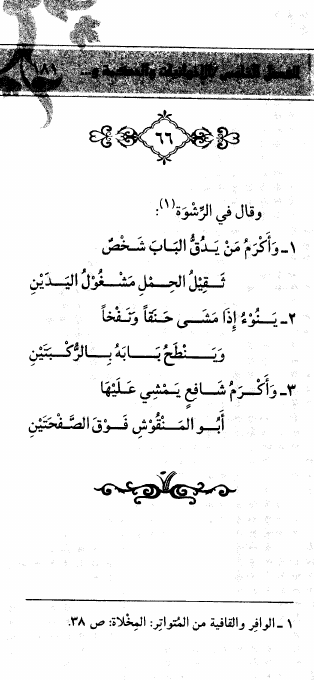 ١٨٩
٦٦
وقال في الرِّشْوَة(١):
١ـ وَأَكْرَمُ مَنْ يَدُقُّ البَابَ شَخْصٌ
ثَقِيْلُ الحِمْلِ مَشْغُوْلُ اليَدَيْنِ
٢ـ يَنُوْءُ إِذَا مَشَى حَنَقاً وَنَفْخاً
وَيَنْطَحُ بَابَهُ بِالرُّكْبَتَيْنِ
٣ـ وَأَكْرَمُ شَافِعٍ يَمْشِي عَلَيْهَا
أَبُو المَنْقُوْشِ فَوْقَ الصَّفْحَتَيْنِ
١ ـ الوافِر والقافية من المُتواتِر: المِخْلاة: ص ٣٨.